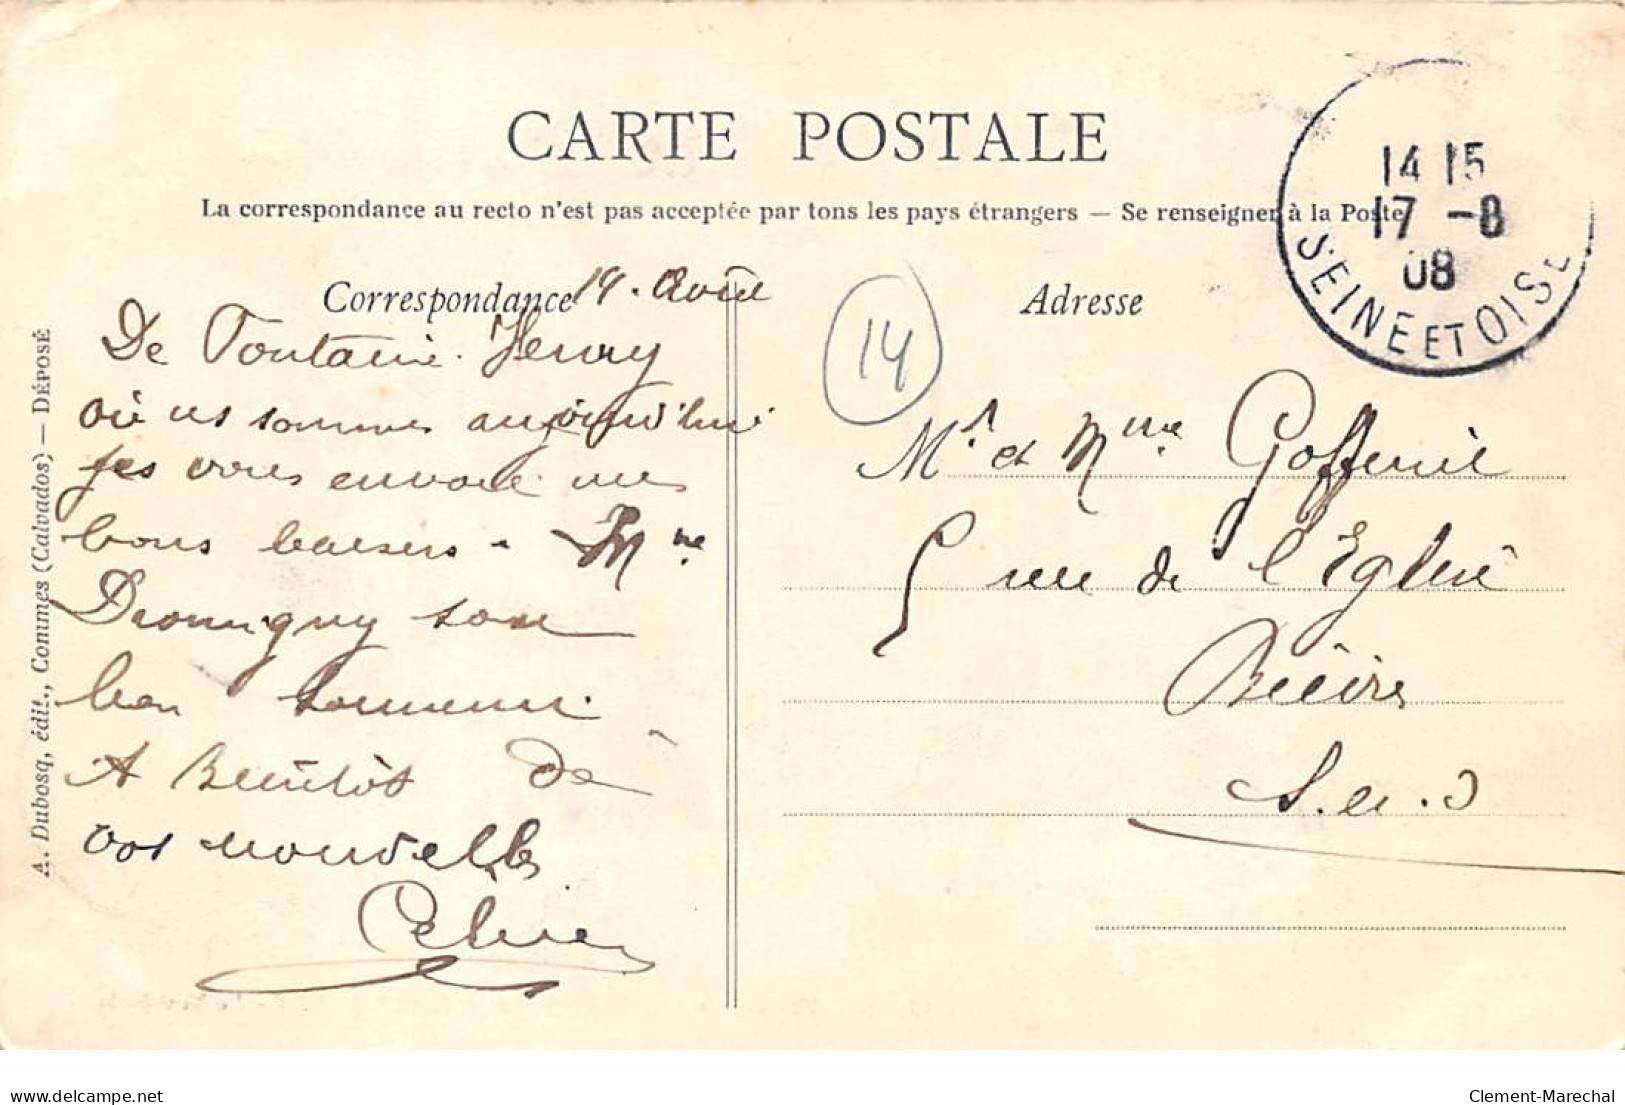 CARTE POSTALE
La correspondance au recto n'est pas acceptée par tous les pays étrangers — Se renseigner à la Poste
14 15
17 - 8
08
SEINE ET OISE
Correspondance
Adresse
A. Dubosq, édit., Commes (Calvados) — DÉPOSÉ
De Fontaine-Henry
où ns sommes aujourd'hui
vous envoie mes
bons baisers - Mme
son
bon
A Bientôt de
vos nouvelles
14
Mr. et Mme
5 rue de l'Eglise
Bièvres
S. et. O
delcampe.net
Clement-Marechal